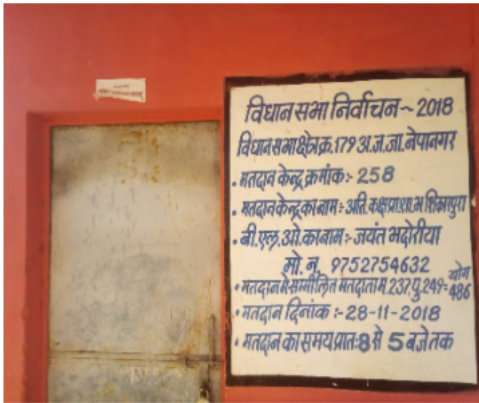 विधान सभा निर्वाचन~2018
विधानसभा क्षेत्र क्र. 179 अ.ज.जा. नेपानगर
• मतदान केन्द्र क्रमांक:- 258
• मतदान केन्द्र का नाम:- अति. कक्ष प्रा.शा.भ
• बी.एल.ओ.का नाम:- जयंत भदोरीया
मो. न. 9752754632
• मतदान मे सम्मीलित मतदाता म. 237 पु. 249= योग 486
• मतदान दिनांक :- 28-11-2018
• मतदान का समय प्रात: 8 से 5 बजे तक